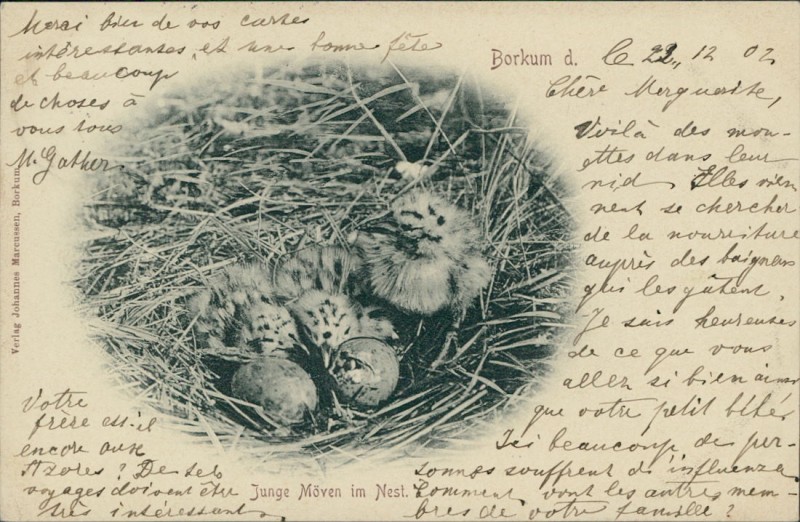 Borkum d. le 22, 12 02
Chère Marguerite,
Voilà des mou-
ettes dans leur
nid Elles vien
nent se chercher
de la nouriture
auprès des baigneurs
qui les gâtent.
Je suis heureuse
de ce que vous
allez si bien ainsi
que votre petit bébé.
Ici beaucoup de per-
sonnes souffrent de l'influenza
Comment vont les autres mem-
bres de votre famille?
Votre
frère est-il
encore aux
Azores? De tels
voyages doivent être
très intéressants
Merci bien de vos cartes
intéressantes, et une bonne fête
et beaucoup
de choses à
vous tous
M. Gather.
Junge Möven im Nest.
Verlag Johannes Marcussen, Borkum